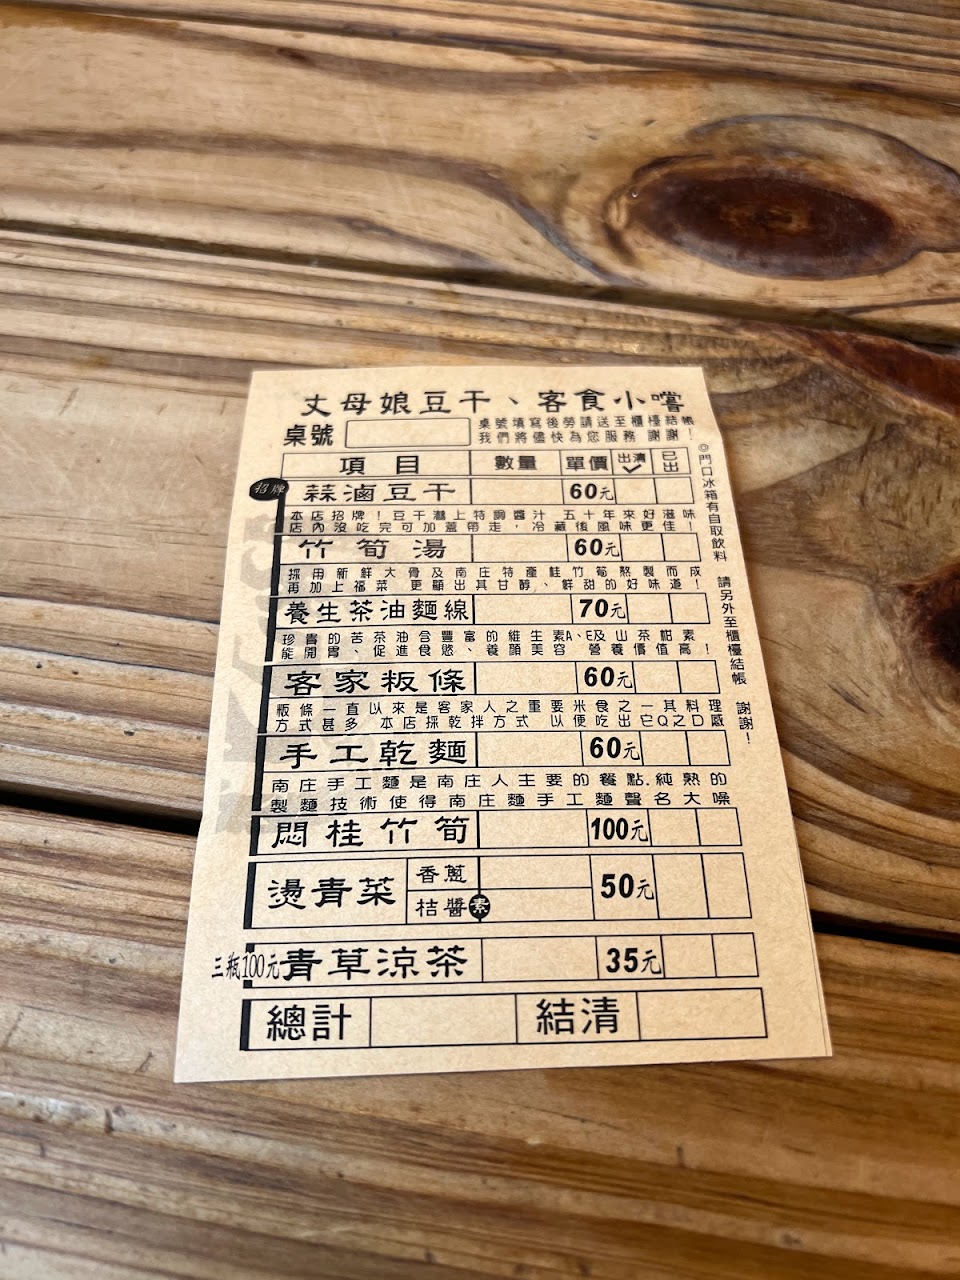 丈母娘豆干、客食小嚐
桌號
桌號填寫後勞請送至櫃檯結帳
我們將儘快為您服務 謝謝！
項目 數量 單價 出清 已出
招牌 蒜滷豆干 60元
本店招牌！豆干淋上特調醬汁 五十年來好滋味
店內沒吃完可加蓋帶走，冷藏後風味更佳！
竹筍湯 60元
採用新鮮大骨及南庄特產桂竹筍熬製而成
再加上福菜 更顯出其甘醇、鮮甜的好味道！
養生茶油麵線 70元
珍貴的苦茶油含豐富的維生素A、E及山茶柑素
能開胃、促進食慾、養顏美容 營養價值高！
客家粄條 60元
粄條一直以來是客家人之重要米食之一其料理
方式甚多 本店採乾拌方式 以便吃出它Q之口感
手工乾麵 60元
南庄手工麵是南庄人主要的餐點.純熟的
製麵技術使得南庄麵手工麵聲名大噪
悶桂竹筍 100元
燙青菜 香蔥 50元
桔醬 素
三瓶100元 青草涼茶 35元
總計 結清
◎門口冰箱有自取飲料 請另外至櫃檯結帳 謝謝！